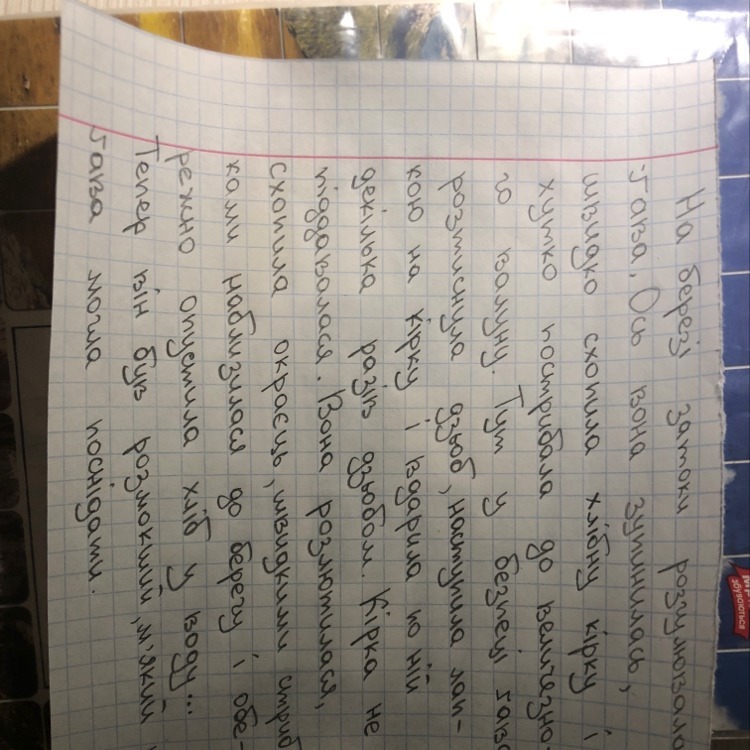 На березі затоки розгулювала
ґава. Ось вона зупинилась,
швидко схопила хлібну кірку і
хутко пострибала до величезно-
го валуну. Тут у безпеці ґава
розтиснула дзьоб, наступила лап-
кою на кірку і вдарила по ній
декілька разів дзьобом. Кірка не
піддавалася. Вона розлютилася,
схопила окраєць, швидкими стриб
ками наблизилася до берегу і обе-
режно опустила хліб у воду...
Тепер він був розмокший, м'який і
ґава могла поснідати.
збуваються